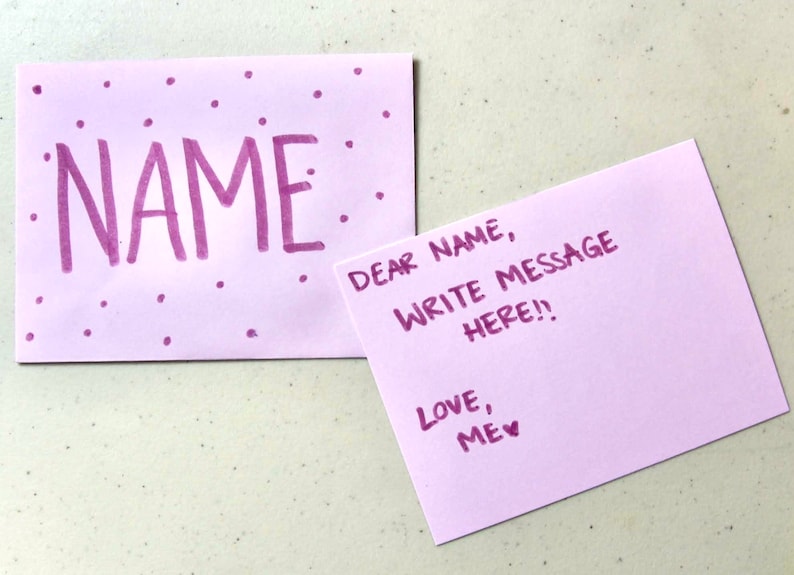 NAME
DEAR NAME,
WRITE MESSAGE
HERE!!
LOVE,
ME♥